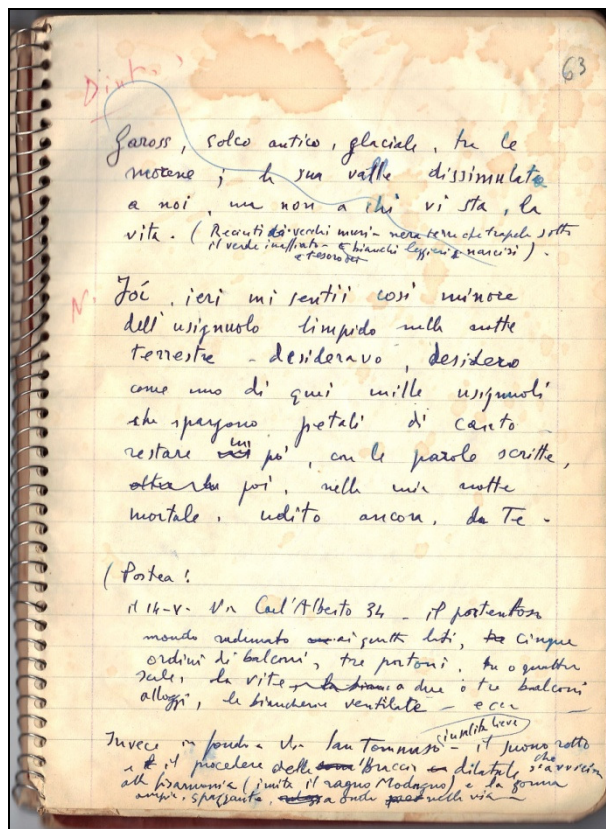 63
Diutos,
Gaross, solco antico, glaciale, tra le
morene; la sua valle dissimulata
a noi, ma non a chi vi sta, la
vita. (Recinti di vecchi muri - nera terra che trapela sotto
il verde - bianchi leggieri narcisi).
e tesoro
N.
Joí, ieri mi sentii così minore
dell'usignuolo limpido nella notte
terrestre - desideravo, desidero
come uno di quei mille usignuoli
che spargono petali di canto
restare un pò, con le parole scritte,
poi, nella mia notte
mortale, udito ancora, da Te.
(Postea:
il 14-V- Via Carl'Alberto 34 - il portentoso
mondo radunato ai quattro lati, cinque
ordini di balconi, tre portoni, tre o quattro
scale, la vite a due o tre balconi
alloggi, le biancherie ventilate - ecc
Invece in fondo a Via San Tommaso - il suono rotto
insolita lieve
e il procedere delle braccia dilatate, che s'avvicina
alla fisarmonica (imita il ragno Modugno) e la gonna
ampia, spazzante, a onde nella via -